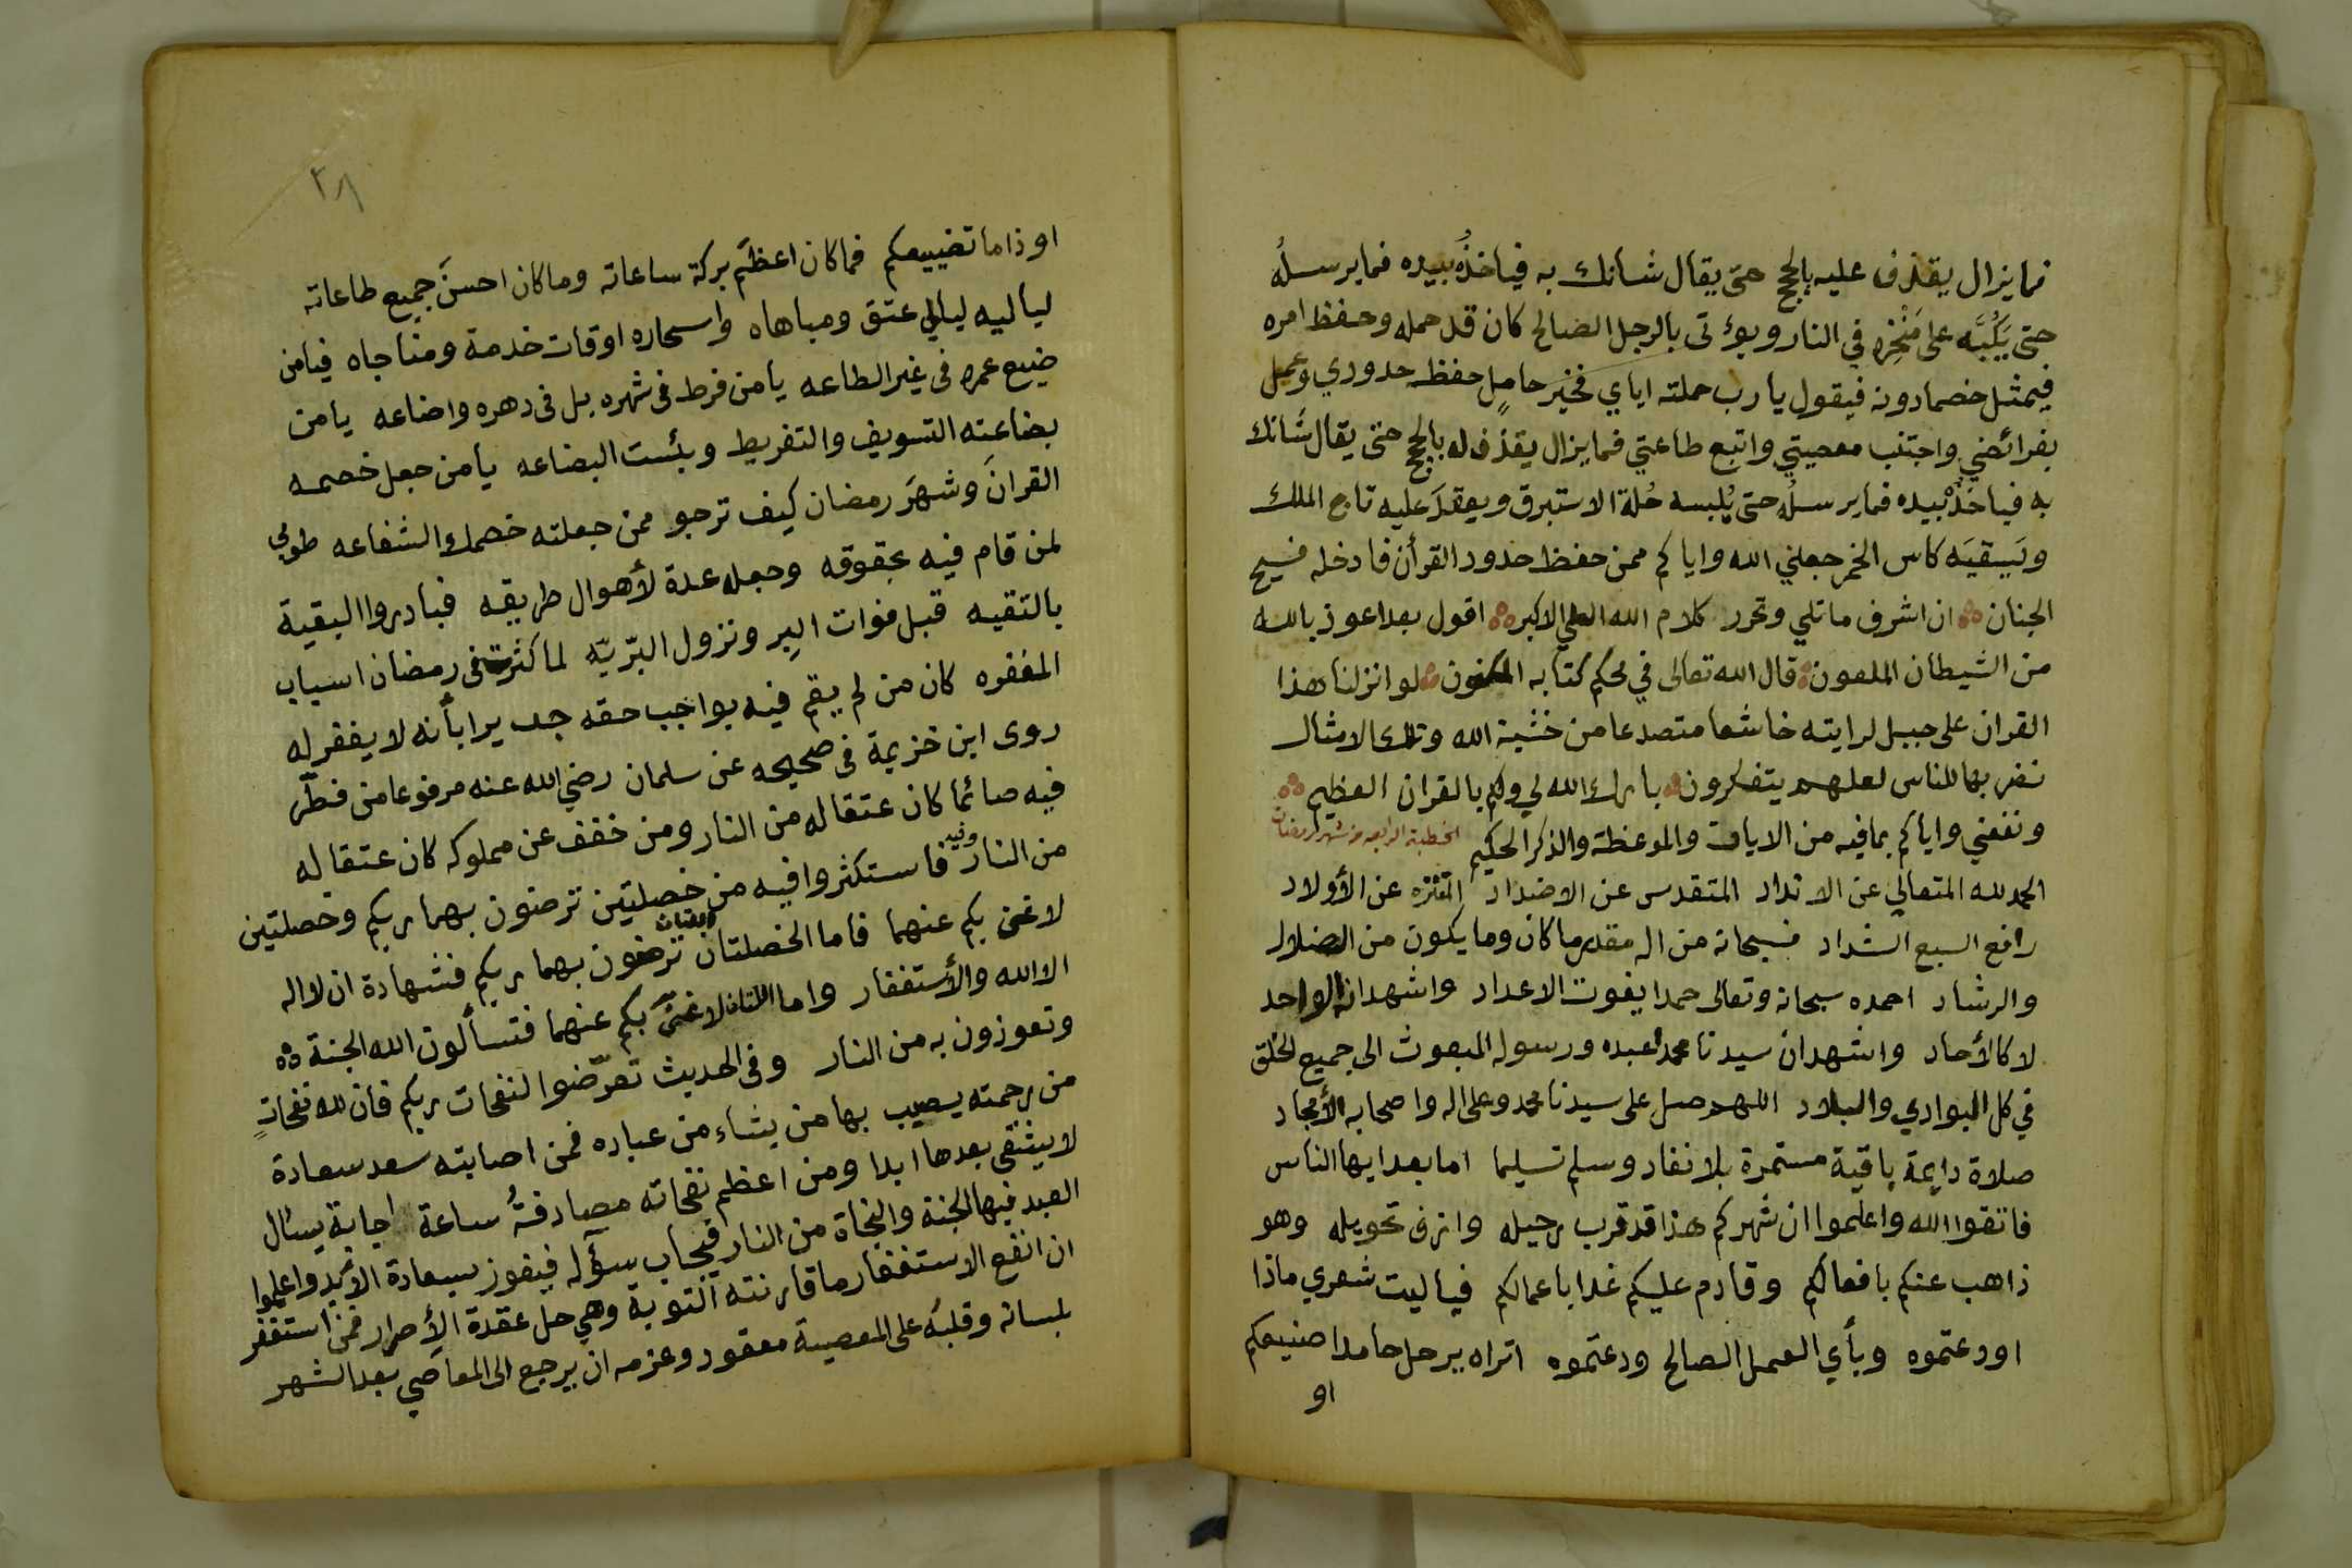 فما يزال يقذف عليه بالحجج حتى يقال شانك به فياخذُ بيده فما يرسلُه
حتى يَكُبَّه على مَنْخِره في النار ويؤتى بالرجل الصالح كان قد حمله وحفظ امره
فيمثل خصما دونه فيقول يا رب حملته اياي فخير حاملٍ حفظ حدودي وعمل
بفرائضي واجتنب معصيتي واتبع طاعتي فما يزال يقذف له بالحجج حتى يقال شانك
به فياخذُ بيده فما يرسلُه حتى يُلبسه حُلة الاستبرق ويعقدَ عليه تاج الملك
ويَسقيَه كاس الخمر جعلني الله واياكم ممن حفظ حدود القرأن فادخله فسيح
الجنان ان اشرف ما تلي وتحرر كلام الله العلي الاكبر اقول بعد اعوذ بالله
من الشيطان الملعون قال الله تعالى في محكم كتابه المكنون لو انزلنا هذا
القران على جبل لرايته خاشعا متصدعا من خشية الله وتلك الامثال
نضربها للناس لعلهم يتفكرون بارك الله لي ولكم بالقران العظيم
ونفعني واياكم بما فيه من الايات والموعظة والذكر الحكيم الخطبة الرابعه من شهر رمضان
الحمد لله المتعالي عن الانداد المتقدس عن الاضداد المتنزه عن الأولاد
رافع السبع الشداد فسبحانه من اله مقدر ما كان وما يكون من الضلال
والرشاد احمده سبحانه وتعالى حمدا يفوت الاعداد واشهد انه الواحد
لا كالأحاد واشهد ان سيدنا محمدا عبده ورسوله المبعوث الى جميع الخلق
في كل البوادي والبلاد اللهم صل على سيدنا محمد وعلى اله واصحابه الأمجاد
صلاة دايمة باقية مستمرة بلا نفاد وسلم تسليما اما بعد ايها الناس
فاتقوا الله واعلموا ان شهركم هذا قد قرب رحيله وازف تحويله وهو
ذاهب عنكم بافعالكم وقادم عليكم غدا باعمالكم فيا ليت شعري ماذا
اودعتموه وبأي العمل الصالح ودعتموه اتراه يرحل حامدا صنيعكم
او
٣٨
او ذاما تضييعكم فما كان اعظَم بركة ساعاته وما كان احسنَ جميع طاعاته
لياليه ليالي عتق ومباهاه واسحاره اوقات خدمة ومناجاه فيا من
ضيع عمره في غير الطاعه يا من فرط في شهره بل في دهره واضاعه يا من
بضاعته التسويف والتفريط وبئست البضاعه يا من جعل خصمه
القرانَ وشهرَ رمضان كيف ترجو ممن جعلته خصمك الشفاعه طوبي
لمن قام فيه بحقوقه وجعله عدة لأهوال طريقه فبادروا البقية
بالتقيه قبل فوات البِر ونزول البّريّه لما كثرت في رمضان اسباب
المغفره كان من لم يقم فيه بواجب حقه جديرا بأنه لا يغفر له
روى ابن خزيمة في صحيحه عن سلمان رضي الله عنه مرفوعا من فطّر
فيه صائما كان عتقا له من النار ومن خفف عن مملوكه كان عتقا له
من النار وفيه فاستكثروا فيه من خصلتين ترضون بهما ربكم وخصلتين
لا غنى بكم عنهما فاما الخصلتان ترضون بهما ربكم فشهادة ان لا اله
الا الله والأستغفار واما اللتان لا غنىً بكم عنهما فتسألون الله الجنة
وتعوذون به من النار وفي الحديث تعرّضوا لنفحات ربكم فان لله نفحاتٍ
من رحمته يصيب بها من يشاء من عباده فمن اصابته سعد سعادة
لا يشقى بعدها ابدا ومن اعظم نفحاته مصادفةُ ساعة اجابة يسال
العبد فيها الجنة والنجاة من النار فيجاب سؤله فيفوز بسعادة الأبد واعلموا
ان انفع الاستغفار ما قارنته التوبة وهي حل عقدة الأصرار فمن استغفر
بلسانه وقلبُه على المعصية معقود وعزمه ان يرجع الى المعاصي بعد الشهر